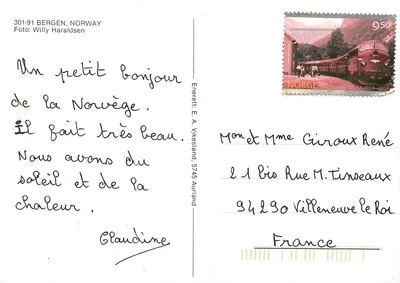 301-91 BERGEN, NORWAY
Foto: Willy Haraldsen
Un petit bonjour
de la Norvège.
Il fait très beau.
Nous avons du
soleil et de la
chaleur.
Claudine
Enerett: E. A. Vikesland, 5745 Aurland
9,50
NORGE
Mon et Mme Giroux René
21 bis Rue M. Tinseaux
94290 Villeneuve le Roi
France